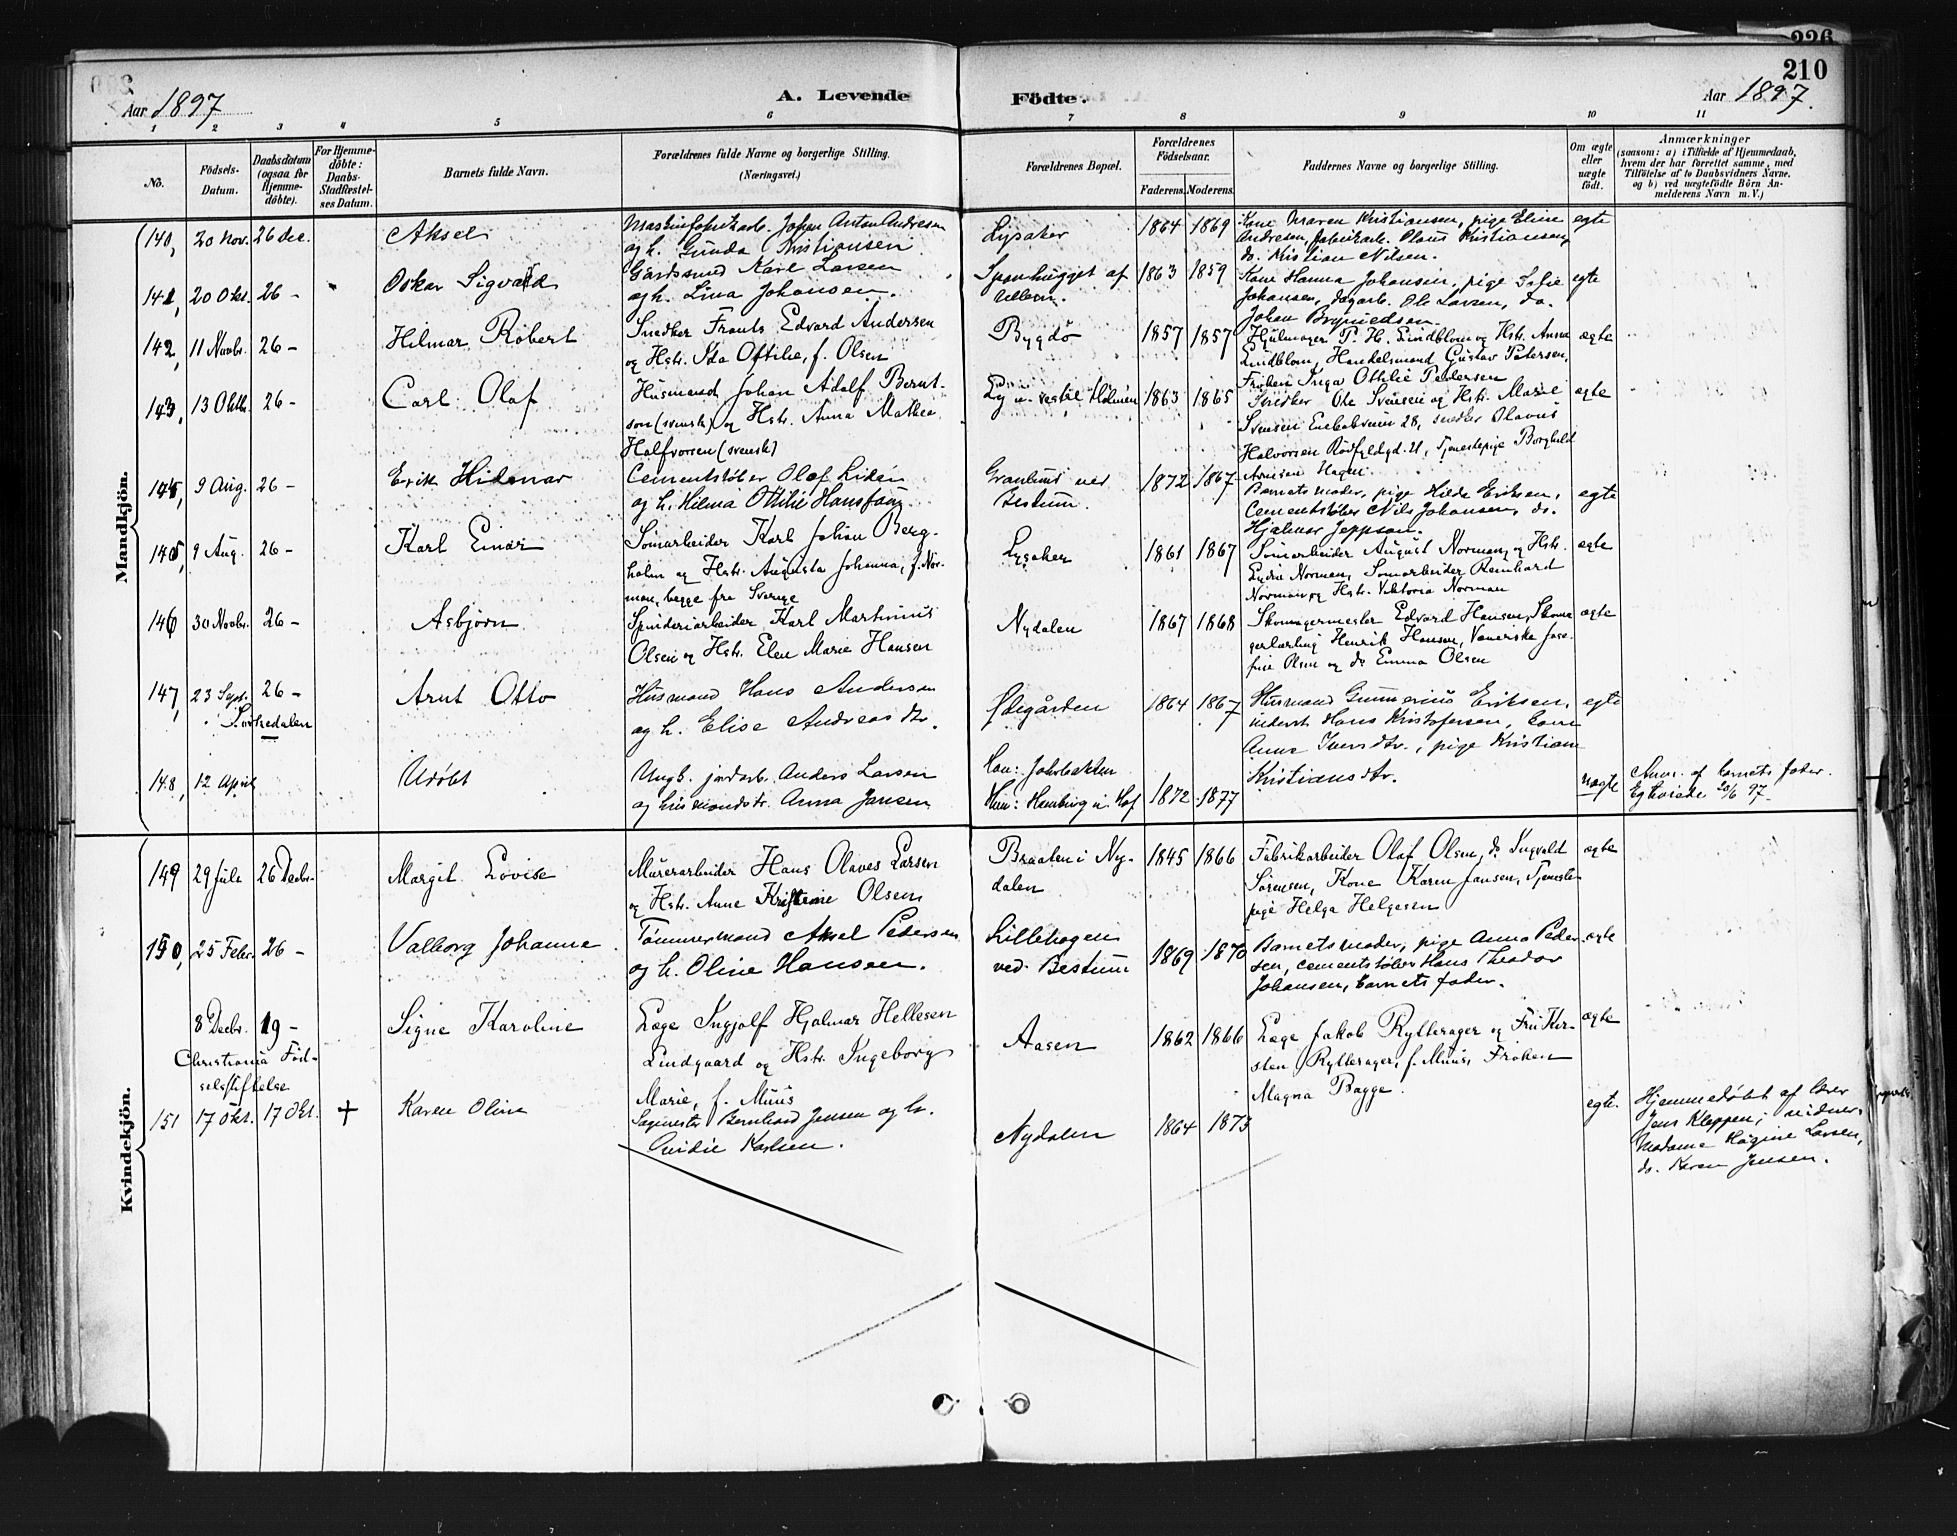 226
210
Aar 1897
A. Levende
Födte.
Aar 1897.
1 2 3 4 5 6 7 8 9 10 11
No.
Födsels-
Datum.
Daabsdatum
(ogsaa for
Hjemme-
döbte).
For Hjemme-
döbte:
Daabs-
Stadfæstel-
ses Datum.
Barnets fulde Navn.
Forældrenes fulde Navne og borgerlige Stilling.
(Næringsvei.)
Forældrenes Bopæl.
Forældrenes
Födselsaar.
Faderens. Moderens.
Faddernes Navne og borgerlige Stilling.
Om ægte
eller
uægte
födt.
Anmærkninger
(saasom: a) i Tilfælde af Hjemmedaab,
hvem der har forrettet samme, med
Tilföielse af to Daabsvidners Navne,
og b) ved uægtefödte Börn An-
melderens Navn m. V.)
Mandkjön.
140, 20 Nov. 26 Dec.
Aksel
Johan Anton Andresen
og h. Gunda Kristiansen
Lysaker
1864 1869
Kone Maren Kristiansen, pige Eline
Andresen, fabrikarb. Olaus Kristiansen,
do. Kristian Nilsen.
egte
141, 20 Okt. 26 -
Oskar Sigvald
Gårdsmed Karl Larsen
og h. Lina Johansen.
af
1863 1859
Kone Hanna Johansen, pige Sofie
Johansen, dagarb. Ole Larsen, do.
Johan
egte
142, 11 Novbr. 26 -
Hilmar Robert
Snedker Frants Edvard Andersen
og Hstr. Ida Ottilie, f. Olsen
Bygdö
1857 1857
Hjulmager P. H. Lindblom og Hstr. Anna
Lindblom, Handelsmand Gustav Pedersen,
Fröken Inga Othilie Pedersen
ægte
143, 13 Oktb. 26 -
Carl Olaf
Husmand Johan Adolf Bernt-
son (svensk) og Hstr. Anna Mathea
Halfvorsen (svensk)
vestre Holmen
1863 1865
Snedker Ole Svensen og Hstr. Marie
Svensen 28, snedker Olavus
Halvorsen 21, Tjenestepige Borghild
Arnesen Hagen.
ægte
144, 9 Aug. 26 -
Erik Hidmar
Cementstöber Olaf Liden
og h. Hilma Othilie
Granlund ved
Bestum.
1872 1867
Barnets moder, pige Hilda Eriksen,
Cementstöber Nils Johansen, do.
Hjalmar Jeppson.
egte
145, 9 Aug. 26 -
Karl Einar
Karl Johan Berg-
holm og Hstr. Augusta Johanna, f. Nor-
man, begge fra Sverige
Lysaker
1861 1867
August Norman og Hstr.
Lydia Norman, Reinhard
Norman og Hstr. Viktoria Norman
ægte
146 30 Novbr. 26 -
Asbjörn
Spinderiarbeider Karl Martinius
Olsen og Hstr. Elen Marie Hansen
Nydalen
1867 1868
Skomagermester Edvard Hansen, Skoma-
gerlærling Henrik Hansen, Jose-
fine Olsen og do Emma Olsen
ægte
147, 23 Sept. 26 -
Sörkedalen
Arnt Otto
Husmand Hans Andersen
og h. Elise Andreasdtr.
Ødegården
1864 1867
Husmand Gunnerius Eriksen,
inderst Hans Kristofersen, kone
Anne Iversdtr., pige Kristiane
Kristiansdtr.
egte
148, 12 April
Udöbt
Ungk. jordarb. Anders Larsen
og husmandsdtr. Anna Jansen
Han:
Hun: i Hof
1872 1877
uægte
Anm. af barnets fader.
20/6 97.
Kvindekjön.
149 29 Juli 26 Decbr.
Margit Lovise
Murerarbeider Hans Olaves Larsen
og Hstr. Anne Kristine Olsen
Braaten i Ny-
dalen
1845 1866
Fabrikarbeider Olaf Olsen, do Ingvald
Sörensen, Kone Karen Jansen, Tjeneste-
pige Helga Helgesen
ægte
150, 25 Febr. 26 -
Valborg Johanne
Tömmermand Aksel Pedersen
og h. Oline Hansen.
Lillehagen
ved Bestum
1869 1870
Barnets moder, pige Anna Peder-
sen, cementstöber Hans Theodor
Johansen, barnets fader.
egte
8 Decbr. 19 -
Christiania Föd-
selsstiftelse
Signe Karoline
Læge Ingjolf Hjalmar Hellesen
Lindgaard og Hstr. Ingeborg
Marie, f. Muus
Aasen
1862 1866
Læge Jakob Rytterager og Fru Kir-
sten Rytterager, f. Muus, Fröken
Magna Bagge.
ægte
151 17 Okt. 17 Okt. +
Karen Oline
Sagmester Bernhard Jensen og h.
Karlsen.
Nydalen
1864 1873
egte.
Hjemmedöbt af lærer
Jens Kleppen; vidner:
Madame Hågine Larsen,
do. Karen Jensen.